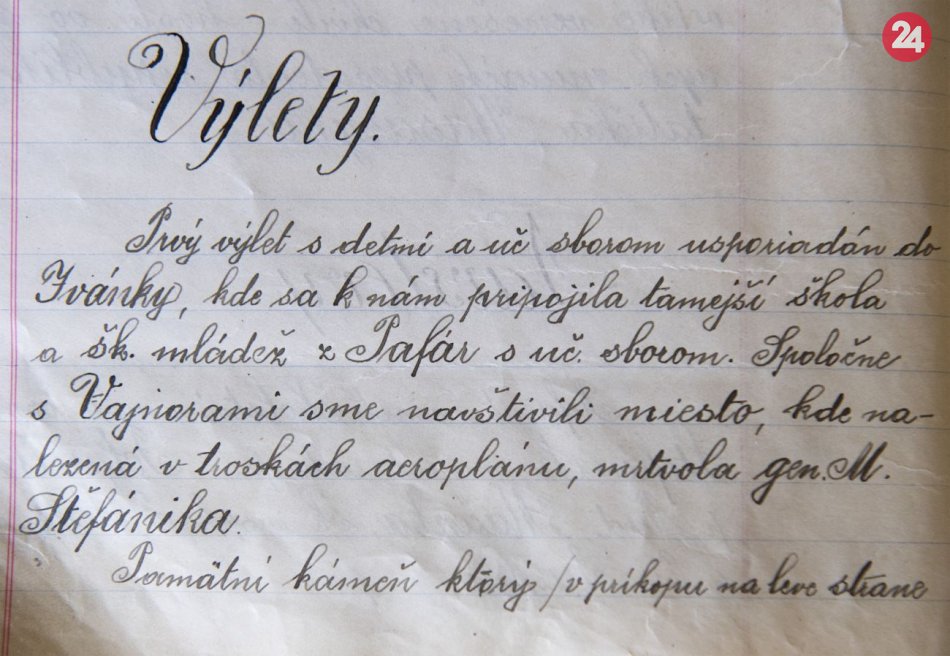 24
Výlety.
Prvý výlet s detmi a uč sborom usporiadán do
Ivánky, kde sa k nám pripojila tamejší škola
a šk. mládež z Pafár s uč. sborom. Spoločne
s Vajnorami sme navštivili miesto, kde na-
lezená v troskách aeroplánu, mrtvola gen. M.
Štefánika.
Pamätni kámeň ktorý / v príkopu na leve strane